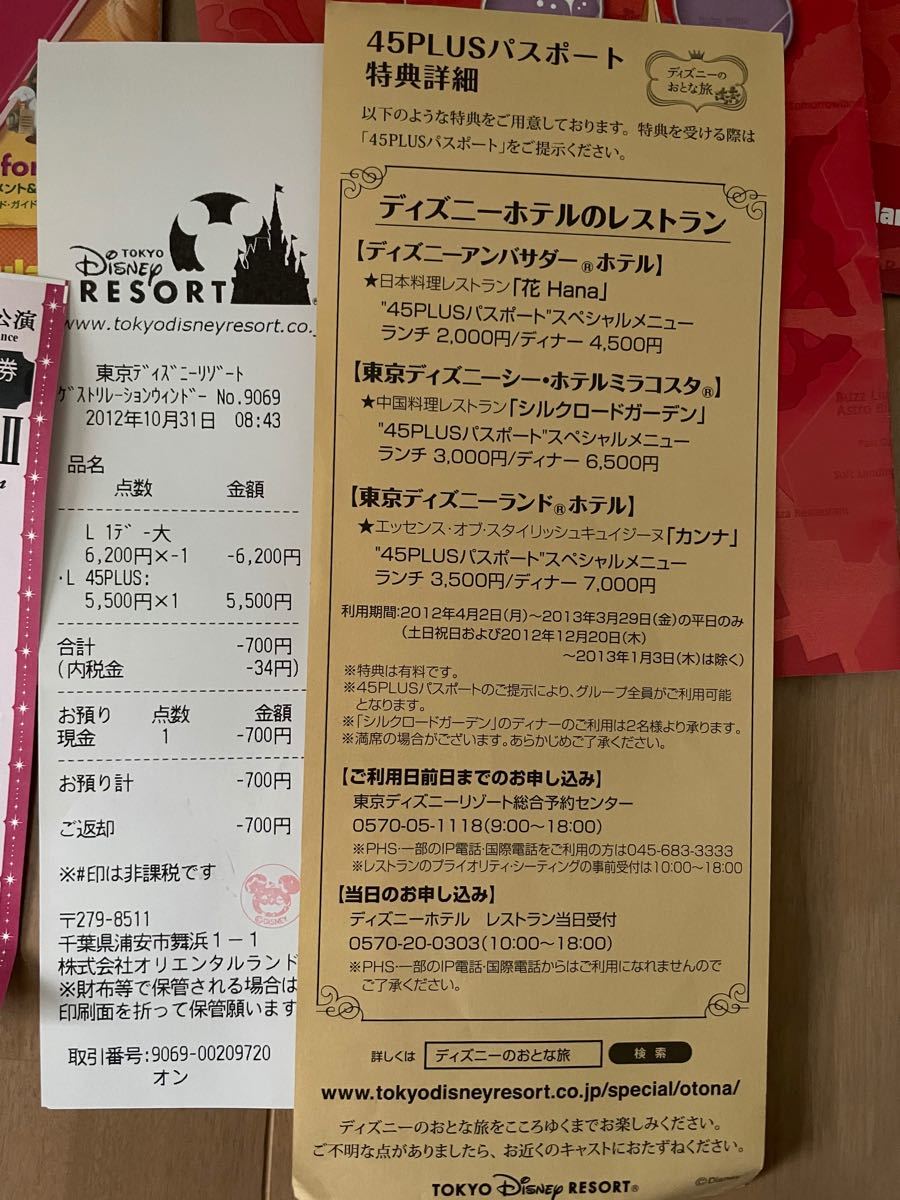 for
メント&
ド・ガイド
公演
nce
券
II
TOKYO
DISNEY
RESORT
www.tokyodisneyresort.co.
東京ﾃﾞｨｽﾞﾆｰﾘｿﾞｰﾄ
ｹﾞｽﾄﾘﾚｰｼｮﾝｳｨﾝﾄﾞｰ No.9069
2012年10月31日 08:43
品名
点数 金額
L 1ﾃﾞｰ-大
6,200円×-1 -6,200円
･L 45PLUS:
5,500円×1 5,500円
合計 -700円
(内税金 -34円)
お預り 点数 金額
現金 1 -700円
お預り計 -700円
ご返却 -700円
※#印は非課税です
©DISNEY
〒279-8511
千葉県浦安市舞浜1－1
株式会社オリエンタルランド
※財布等で保管される場合は
印刷面を折って保管願います
取引番号:9069-00209720
オン
45PLUSパスポート
特典詳細
ディズニーの
おとな旅
以下のような特典をご用意しております。特典を受ける際は
「45PLUSパスポート」をご提示ください。
ディズニーホテルのレストラン
【ディズニーアンバサダー®ホテル】
★日本料理レストラン「花 Hana」
"45PLUSパスポート"スペシャルメニュー
ランチ 2,000円/ディナー 4,500円
【東京ディズニーシー・ホテルミラコスタ®】
★中国料理レストラン「シルクロードガーデン」
"45PLUSパスポート"スペシャルメニュー
ランチ 3,000円/ディナー 6,500円
【東京ディズニーランド®ホテル】
★エッセンス・オブ・スタイリッシュキュイジーヌ「カンナ」
"45PLUSパスポート"スペシャルメニュー
ランチ 3,500円/ディナー 7,000円
利用期間:2012年4月2日(月)～2013年3月29日(金)の平日のみ
(土日祝日および2012年12月20日(木)
～2013年1月3日(木)は除く)
※特典は有料です。
※45PLUSパスポートのご提示により、グループ全員がご利用可能
となります。
※「シルクロードガーデン」のディナーのご利用は2名様より承ります。
※満席の場合がございます。あらかじめご了承ください。
【ご利用日前日までのお申し込み】
東京ディズニーリゾート総合予約センター
0570-05-1118(9:00～18:00)
※PHS・一部のIP電話・国際電話をご利用の方は045-683-3333
※レストランのプライオリティ・シーティングの事前受付は10:00～18:00
【当日のお申し込み】
ディズニーホテル レストラン当日受付
0570-20-0303(10:00～18:00)
※PHS・一部のIP電話・国際電話からはご利用になれませんので
ご了承ください。
詳しくは ディズニーのおとな旅 検索
www.tokyodisneyresort.co.jp/special/otona/
ディズニーのおとな旅をこころゆくまでお楽しみください。
ご不明な点がありましたら、お近くのキャストにおたずねください。
TOKYO DISNEY RESORT®
©Disney